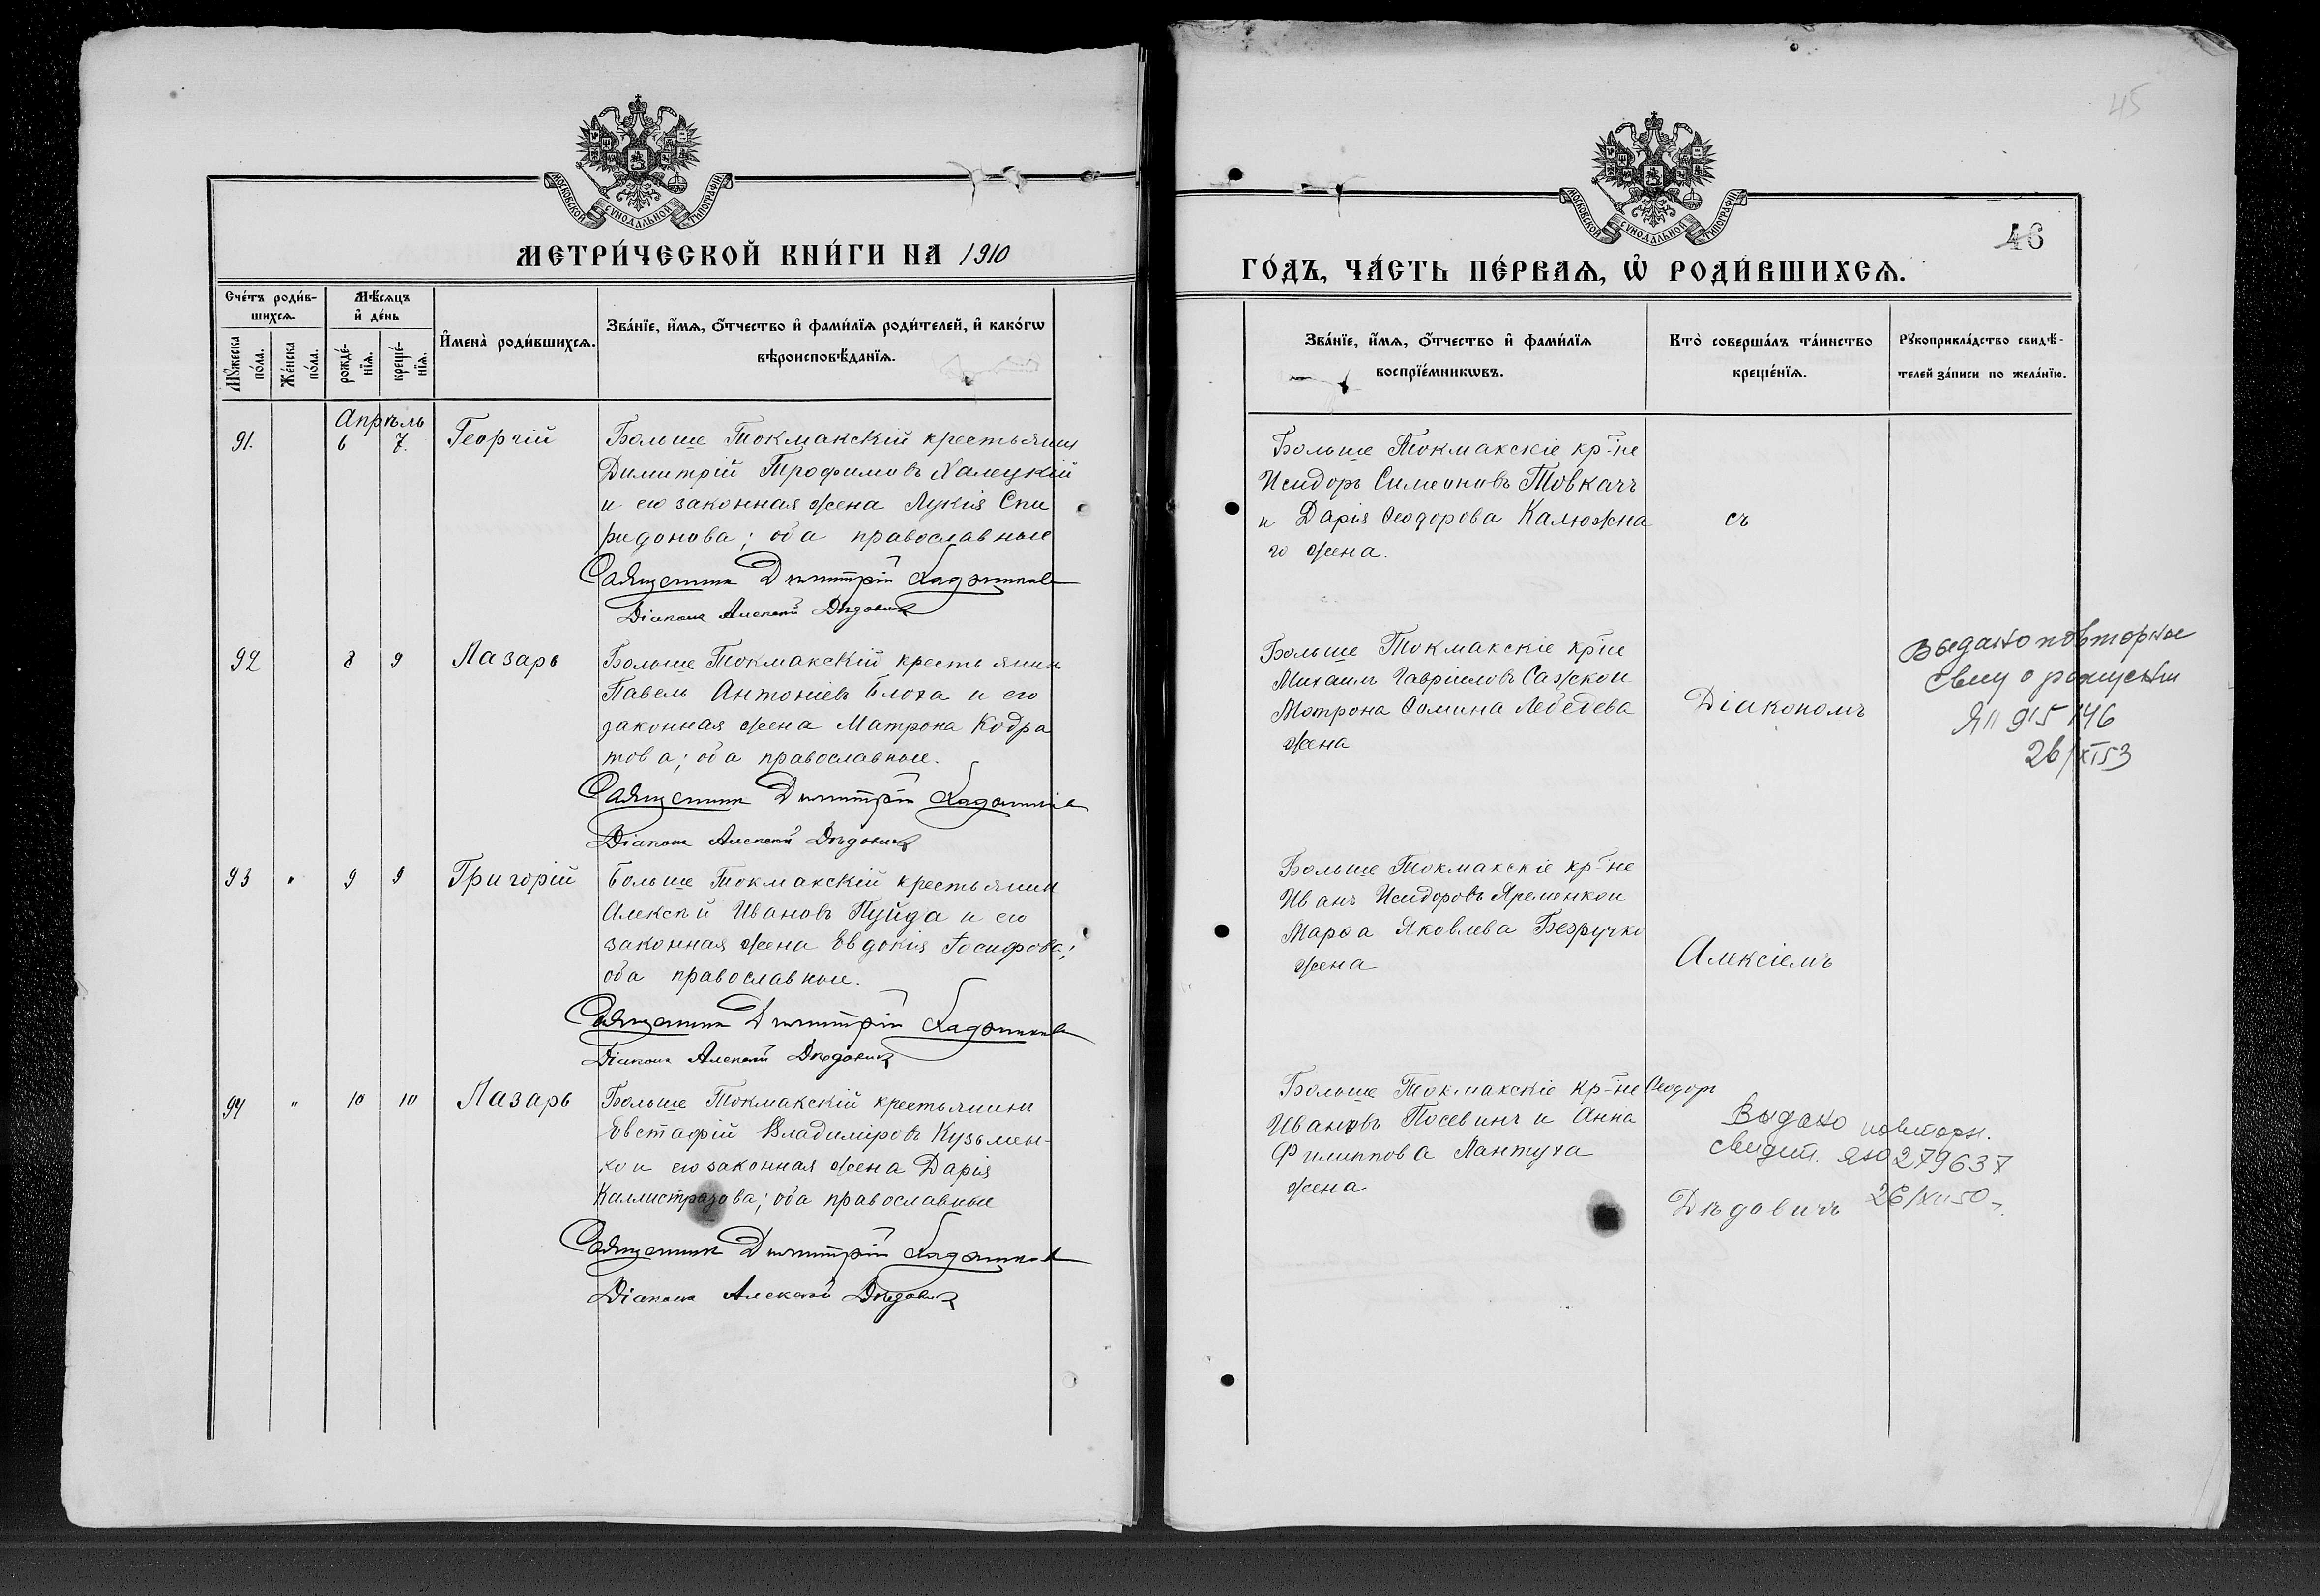 МОСКОВСКОЙ СѴНОДАЛЬНОЙ ТИПОГРАФІИ
МЕТРИ́ЧЕСКОЙ КНИ́ГИ НА 1910
Сче́тъ роди́в-
шихсѧ.
Мѣ́сѧцъ
и҆ де́нь
И҆мена̀ роди́вшихсѧ.
Зва́нїе, и҆́мѧ, ѻ҆́тчество и҆ фами́лїѧ роди́телей, и҆ како́гѡ
вѣроисповѣ́данїѧ.
Мꙋ́жеска
по́ла.
Же́нска
по́ла.
рожде́-
нїѧ.
креще́-
нїѧ.
Апрѣль
91. 6 7. Георгій
Больше Токмакскій крестьянин
Димитрій Трофимовъ Халецкій
и его законная жена Лукія Спи
ридонова; оба православные
Священник Димитрій
Діаконъ Алексѣй Дѣдовичъ
92 8 9 Лазарь
Больше Токмакскій крестьянин
Павелъ Антоніевъ Блоха и его
законная жена Матрона Кодра
това; оба православные.
Священник Димитрій
Діаконъ Алексѣй Дѣдовичъ
93 " 9 9 Григорій
Больше Токмакскій крестьянин
Алексѣй Ивановъ Пуйда и его
законная жена Евдокія Іосифова;
оба православные.
Священник Димитрій
Діаконъ Алексѣй Дѣдовичъ
94 " 10 10 Лазарь
Больше Токмакскій крестьянин
Евстафій Владиміровъ Кузьмен-
ко и его законная жена Дарія
Каллистратова; оба православные
Священник Димитрій
Діаконъ Алексѣй Дѣдовичъ
45
МОСКОВСКОЙ СѴНОДАЛЬНОЙ ТИПОГРАФІИ
46
ГО́ДЪ, ЧА́СТЬ ПЕ́РВАѦ, Ѡ҆ РОДИ́ВШИХСѦ.
Зва́нїе, и҆́мѧ, ѻ҆́тчество и҆ фами́лїѧ
воспрїе́мникѡвъ.
Кто̀ соверша́лъ та́инство
креще́нїѧ.
Рꙋкоприкла́дство свидѣ́-
телей за́писи по жела́нїю.
Больше Токмакскіе кр-не
Исидоръ Симеоновъ Товкачъ
и Дарія Ѳеодорова Калюжна
го жена.
съ
Больше Токмакскіе кр-не
Михаилъ Гавріиловъ Сажкои
Мотрона Ѳомина Лебедева
жена
Діакономъ
Выдано повторное
Свид о рождении
ЯП 915146
26/XI53
Больше Токмакскіе кр-не
Иванъ Исидоровъ Яременкои
Марѳа Яковлева Безручко
жена
Алексіемъ
Больше Токмакскіе кр-не Ѳеодоръ
Ивановъ Посевинъ и Анна
Филиппова Лантуха
жена
Выдано повторн.
Свидет. ЯЮ 279637
26/XII50
Дѣдовичъ